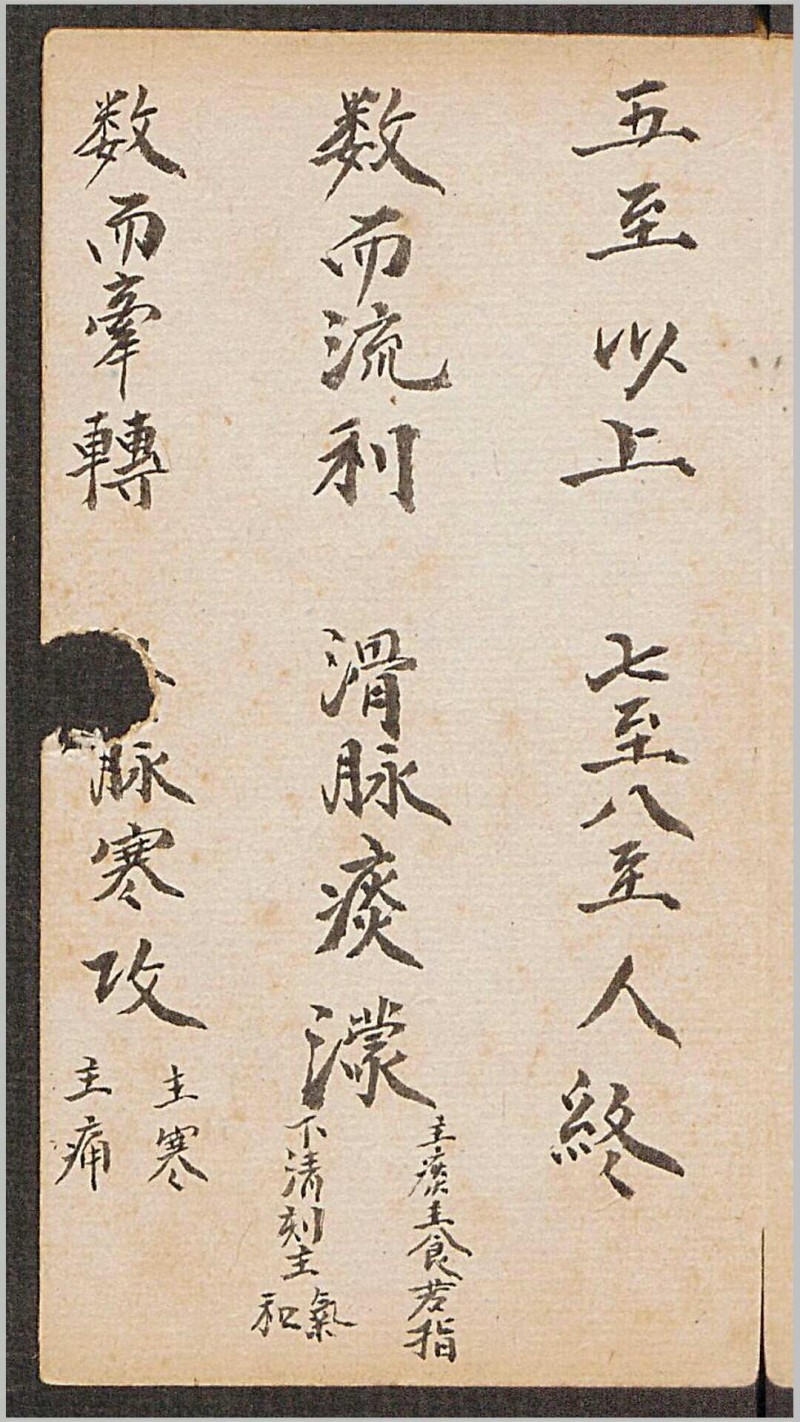 五至以上 七至八至人終
数而流利 滑脉痰濛
主痰主食若指
下清刻主氣和
数而牽轉 脉寒攻
主寒
主痛